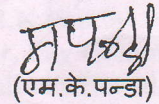 (एम.के.पन्डा)